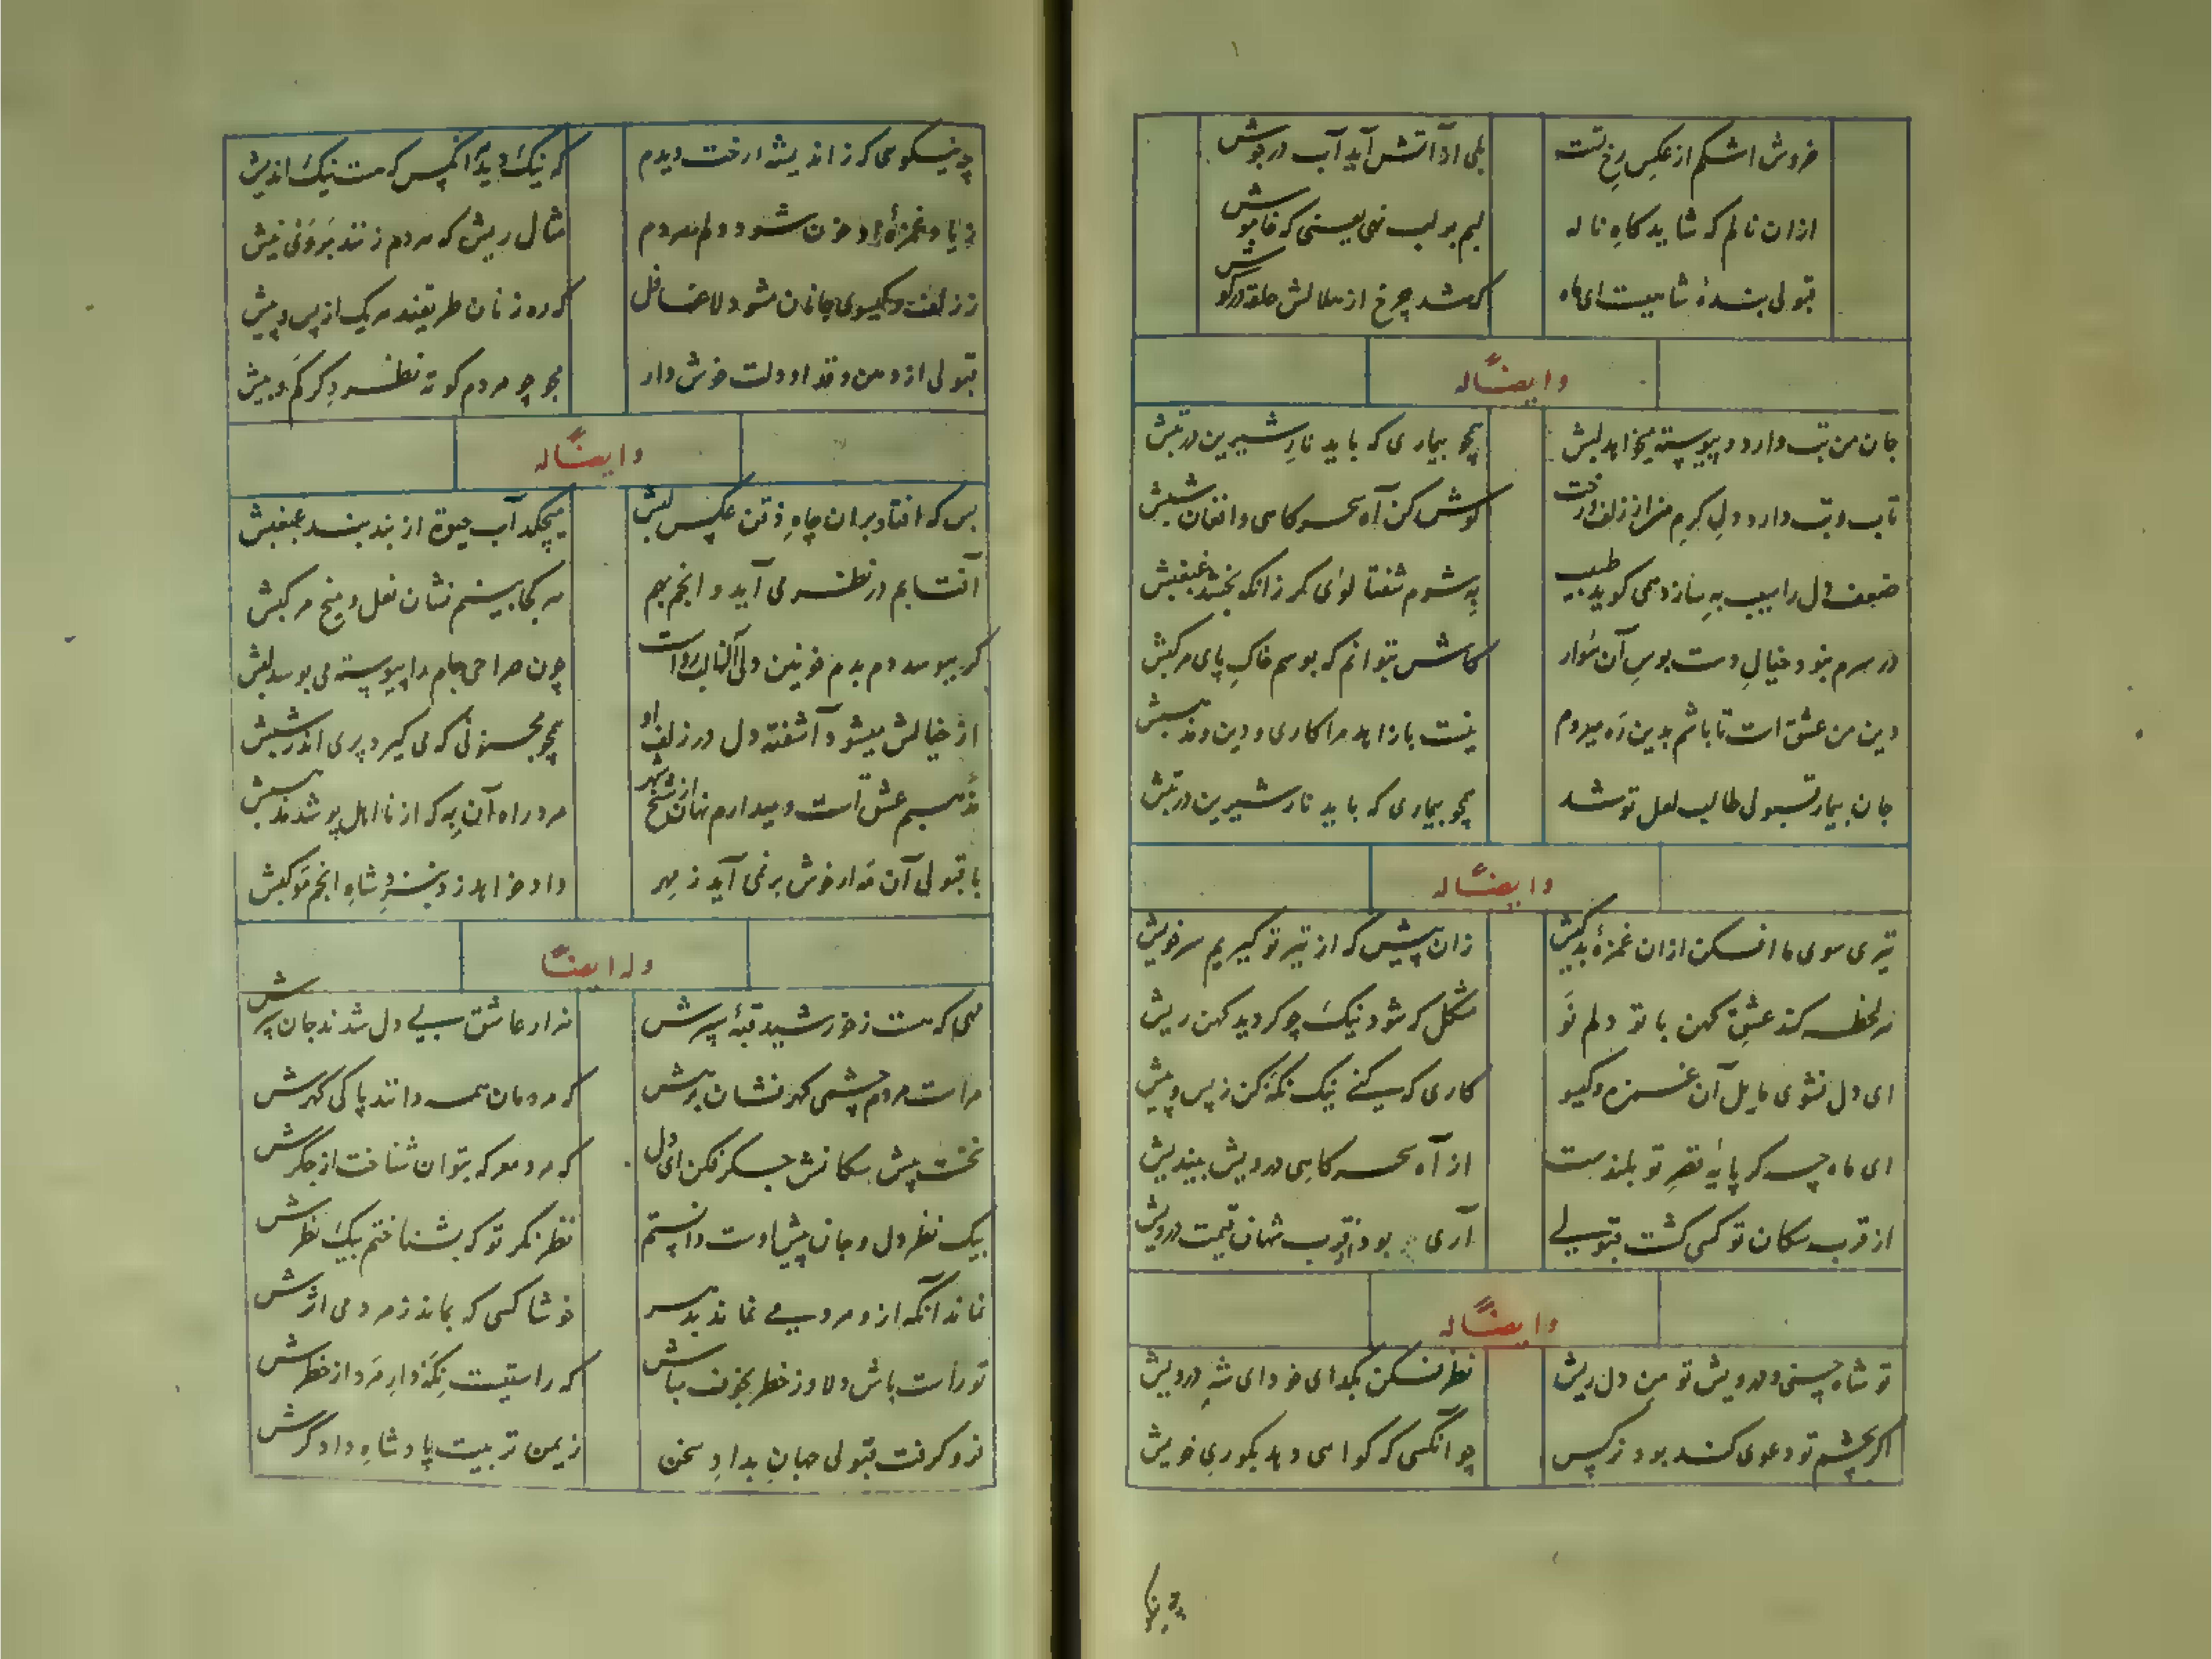 خروش اشکم از عکس رخ تست
بلی از آتش آید آب در جوش
ازان نالم که شاید گاه ناله
لبم بر لب نهی یعنی که خاموش
قبولی بندهٔ شاهیست ای ماه
که شد چرخ از هلالش حلقه در گوش
وایضاً له
جان من تب دارد و پیوسته میخواهد لبش
همچو بیماری که باید نار شیرین در تبش
تاب و تب دارد دل گرم من از زلف و رخت
گوش کن آه سحرگاهی و افغان شبش
ضعف دل را سیب به سازد همی گوید طبیب
به شوم شفتالوئی گر زانکه بخشد غبغبش
در سرم نبود خیال دست بوس آن سوار
کاش بتوانم که بوسم خاک پای مرکبش
دین من عشق است تا باشم بدین ره میروم
نیست با زاهد مرا کاری و دین و مذهبش
جان بیمار قبولی طالب لعل تو شد
همچو بیماری که باید نار شیرین در تبش
وایضاً له
تیری سوی ما افکن ازان غمزهٔ بدکیش
زان پیش که از تیر تو گیریم سر خویش
هر لحظه کند عشق کهن با تو دلم نو
مشکل که شود نیک چو گردید کهن ریش
ای دل نشوی مایل آن غمزه و گیسو
کاری که کنی نیک نگه کن ز پس و پیش
ای ماه چه گر پایهٔ قصر تو بلندست
از آه سحرگاهی درویش بیندیش
از قرب سگان تو کسی گشت قبولی
آری بود از قرب شهان قیمت درویش
وایضاً له
تو شاه حسنی و درویش تو من دل ریش
نظر فکن بگدای خود ای شه درویش
اگر بچشم تو دعوی کند بود نرگس
چو آنکسی که گواهی دهد بکوری خویش
چه نیکو
چه نیکوی که ز اندیشهٔ رخت دیدم
که نیک دید هر آنکس که هست نیک اندیش
بیاد غمزهٔ او خون شود دلم هر دم
مثال ریش که هر دم زنند بروی نیش
ز زلف و گیسوی جانان مشو دلا غافل
که رهزنان طریقند هر یک از پس و پیش
قبولی از دهن و قد او دلت خوش دار
مجو چو مردم کوته نظر دگر کم و بیش
وایضاً له
بس که افتاد بران چاه ذقن عکس لبش
میچکد آب حیوة از بند بند غبغبش
آفتابم در نظر می آید و انجم بهم
هر کجا بینم نشان نعل و میخ مرکبش
گر ببوسد دم بدم خونین دلی آن لب رواست
چون صراحی جام را پیوسته می بوسد لبش
از خیالش میشود آشفته دل در زلف او
همچو مجنونی که می گیرد پری اندر شبش
مذهبم عشق است و میدارم نهان از شیخ شهر
مرد راه آن به که از نااهل پوشد مذهبش
با قبولی آن مه ار خوش بر نمی آید ز مهر
داد خواهد زد بنزد شاه انجم موکبش
وله ایضاً
مهی که هست ز خورشید قبهٔ سپرش
هزار عاشق بی دل شدند جان سپرش
مراست مردم چشمی گهر نشان برهش
که مردمان همه دانند پاکی گهرش
نخست پیش سگانش جگر فکن ای دل
که مرد معرکه بتوان شناخت از جگرش
بیک نظر دل و جان پیش اوست دانستم
نظر نگر تو که بشناختم بیک نظرش
نماند آنکه ازو مردمی نماند بدهر
خوشا کسی که بماند ز مردمی اثرش
تو راست باش دلا وز خطر بخوف مباش
که راستیست نگهدار مرد از خطرش
فرو گرفت قبولی جهان بداد سخن
ز یمن تربیت پادشاه دادگرش